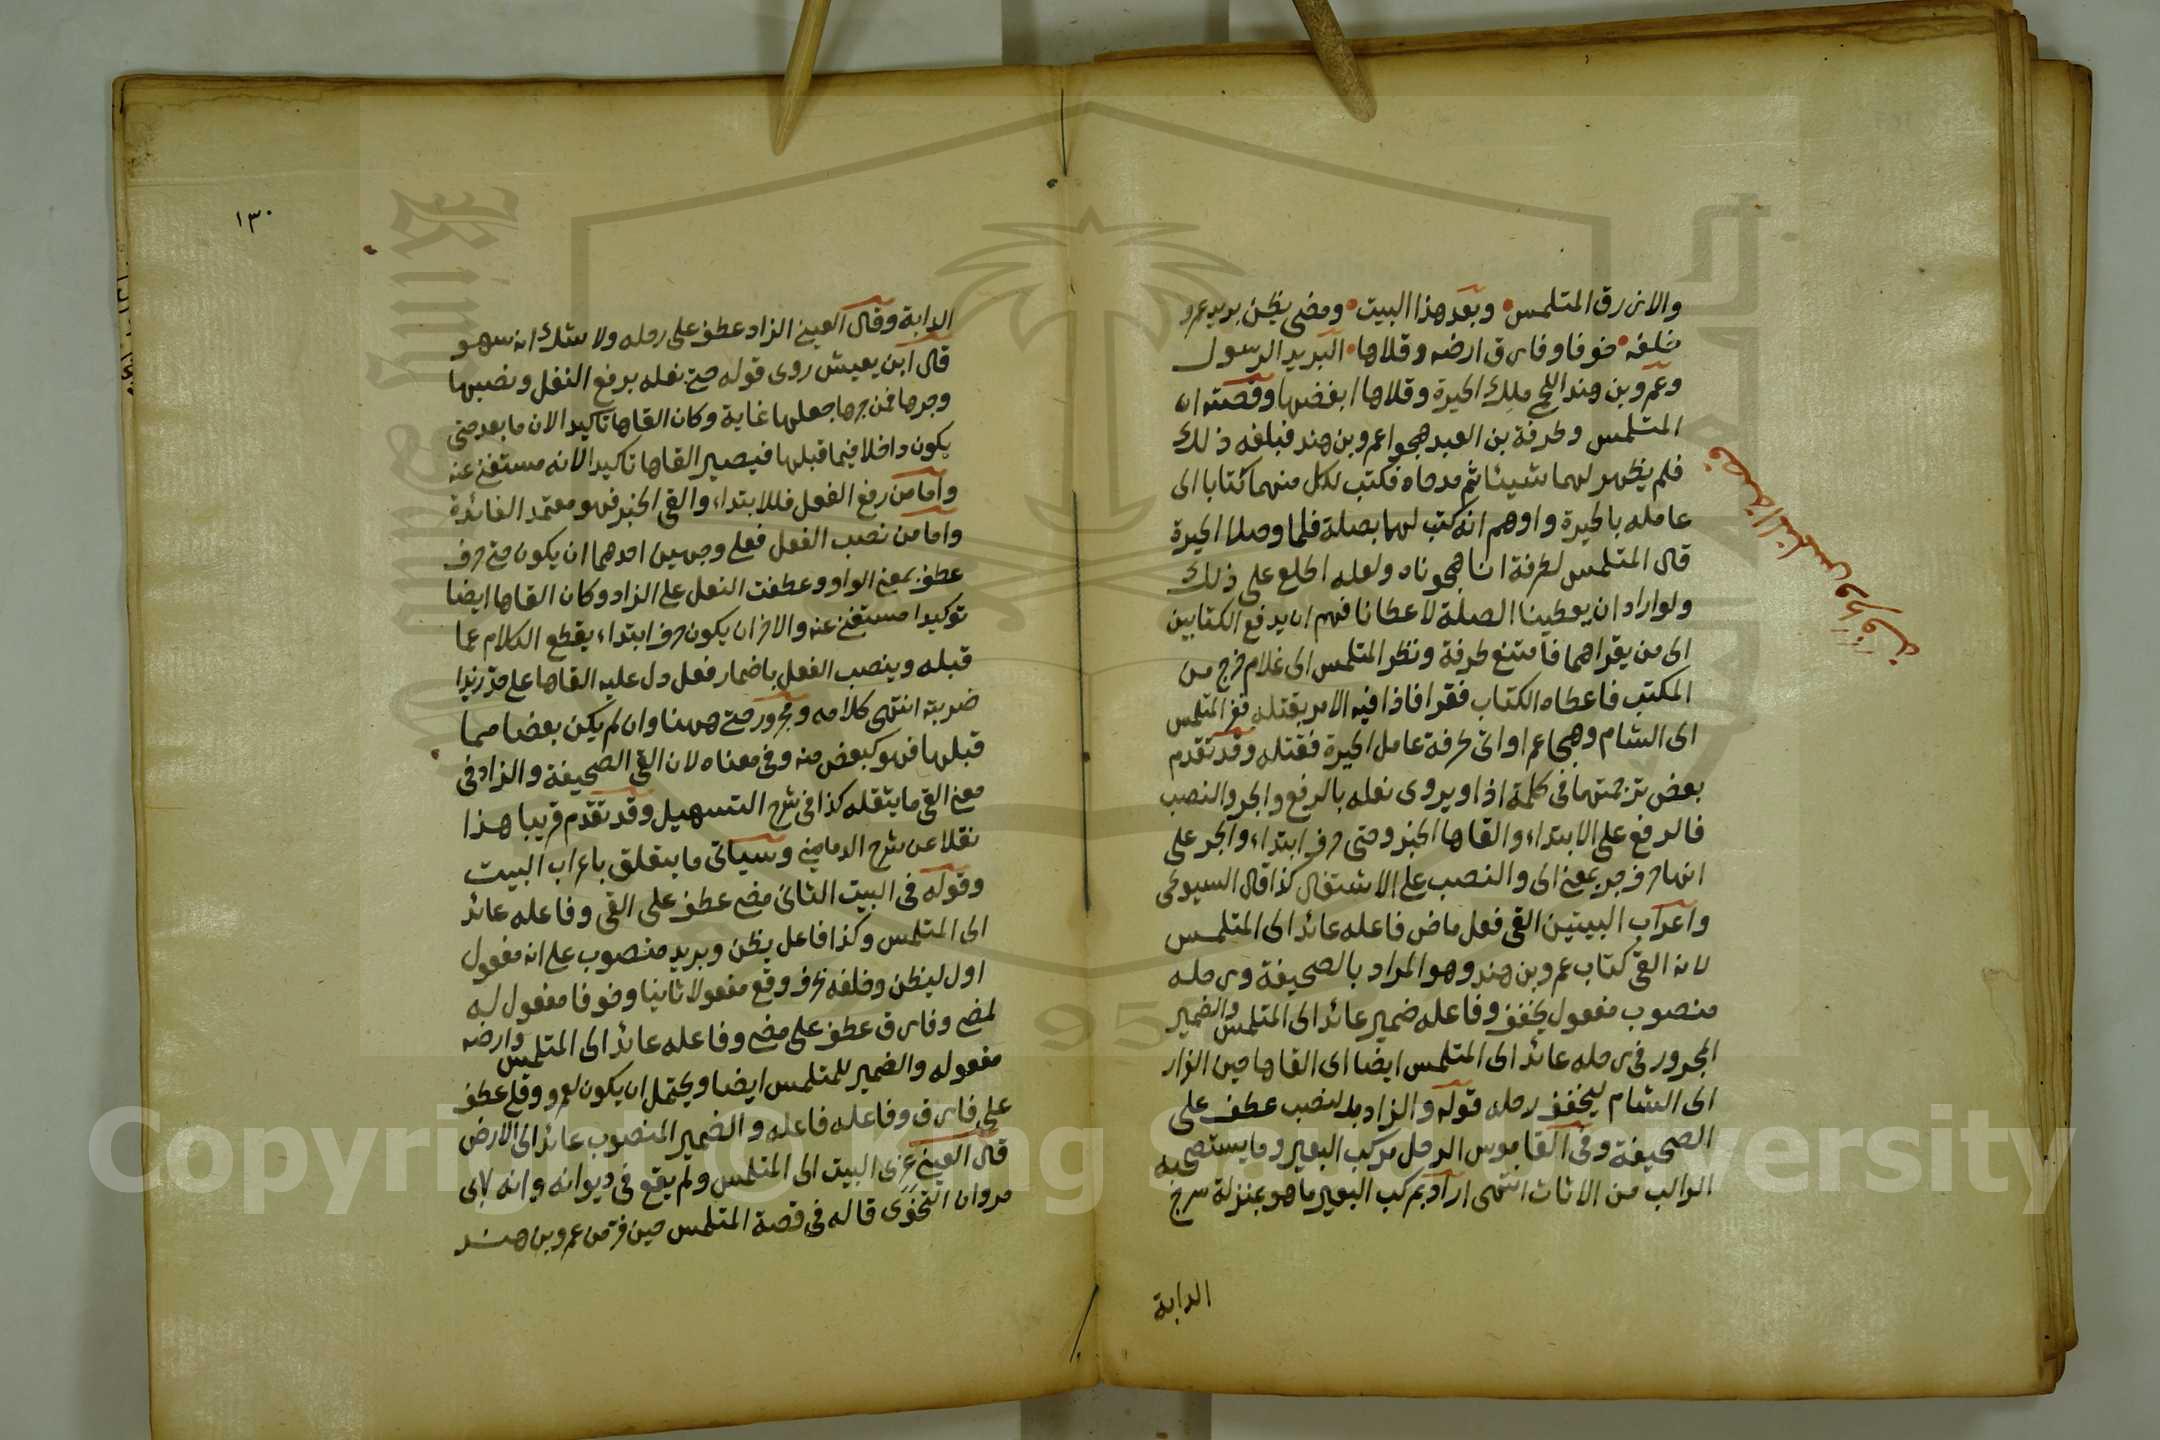 والازرق المتلمس • وبعد هذا البيت • ومضى يظن بريد عمرو
خلفه • خوفا وفارق ارضه وقلاها • البريد الرسول
وعمرو بن هند اللخمي ملك الحيرة وقلاها ابغضها وقصته ان
المتلمس وطرفة بن العبد هجوا عمرو بن هند فبلغه ذلك
فلم يظهر لهما شيئا ثم مدحاه فكتب لكل منهما كتابا الى
عامله بالحيرة واوهم انه كتب لهما بصلة فلما وصلا الحيرة
قال المتلمس لطرفة انا هجوناه ولعله اطلع على ذلك
ولو اراد ان يعطينا الصلة لاعطانا فهم ان يدفع الكتابين
الى من يقراهما فامتنع طرفة ونظر المتلمس الى غلام خرج من
المكتب فاعطاه الكتاب فقرا فاذا فيه الامر بقتله ففر المتلمس
الى الشام وهجا عمرا واتى طرفة عامل الحيرة فقتله وقد تقدم
بعض ترجمتهما في كلمة اذا ويروى نعله بالرفع والجر والنصب
فالرفع على الابتداء والقاها الخبر وحتى حرف ابتداء والجر على
انها حرف جر بمعنى الى والنصب على الاشتغال كذا قال السيوطي
واعراب البيتين القى فعل ماض فاعله عائد الى المتلمس
لانه القى كتاب عمرو بن هند وهو المراد بالصحيفة ورحله
منصوب مفعول يخفف وفاعله ضمير عائد الى المتلمس والضمير
المجرور في رحله عائد الى المتلمس ايضا اى القاها حين الزار
الى الشام ليخفف رحله قوله والزاد بالنصب عطف على
الصحيفة وفي القاموس الرحل مركب البعير وما يستصحبه
الراكب من الاثاث انتهى اراد بمركب البعير ما هو بمنزلة سرج
الدابة
قصة المتلمس وطرفة
١٣٠
الدابة وقال العيني الزاد عطف على رحله ولا شك انه سهو
قال ابن يعيش روى قوله حتى نعله برفع النعل ونصبها
وجرها فمن جرها جعلها غاية وكان القاها تاكيدا لان ما بعد حتى
يكون داخلا فيما قبلها فيصير القاها تاكيدا لانه مستغنى عنه
واما من رفع الفعل فللابتداء والقى الخبر فهو معتمد الفائدة
واما من نصب الفعل فعلى وجهين احدهما ان يكون حتى حرف
عطف بمعنى الواو وعطفت النعل على الزاد وكان القاها ايضا
توكيدا مستغنى عنه والاخر ان يكون حرف ابتداء يقطع الكلام عما
قبله وينصب الفعل باضمار فعل دل عليه القاها على حد زيدا
ضربته انتهى كلامه ومجرور حتى ههنا وان لم يكن بعضا مما
قبلها فهو كبعض منه وفي معناه لان القى الصحيفة والزاد في
معنى القى ما يثقله كذا في شرح التسهيل وقد تقدم قريبا هذا
نقلا عن شرح الدماميني وسياتى ما يتعلق باعراب البيت
وقوله في البيت الثاني مضى عطف على القى وفاعله عائد
الى المتلمس وكذا فاعل يظن وبريد منصوب على انه مفعول
اول ليظن وخلفه ظرف وقع مفعولا ثانيا وخوفا مفعول له
لمضى وفارق عطف على مضى وفاعله عائد الى المتلمس وارضه
مفعوله والضمير للمتلمس ايضا ويحتمل ان يكون لعمرو وقلا عطف
على فارق وفاعله فاعله والضمير المنصوب عائد الى الارض
قال العيني عزى البيت الى المتلمس ولم يقع في ديوانه وانه لابى
مروان النحوى قاله في قصة المتلمس حين فر من عمرو بن هند
King Saud University
1957
Copyright © King Saud University